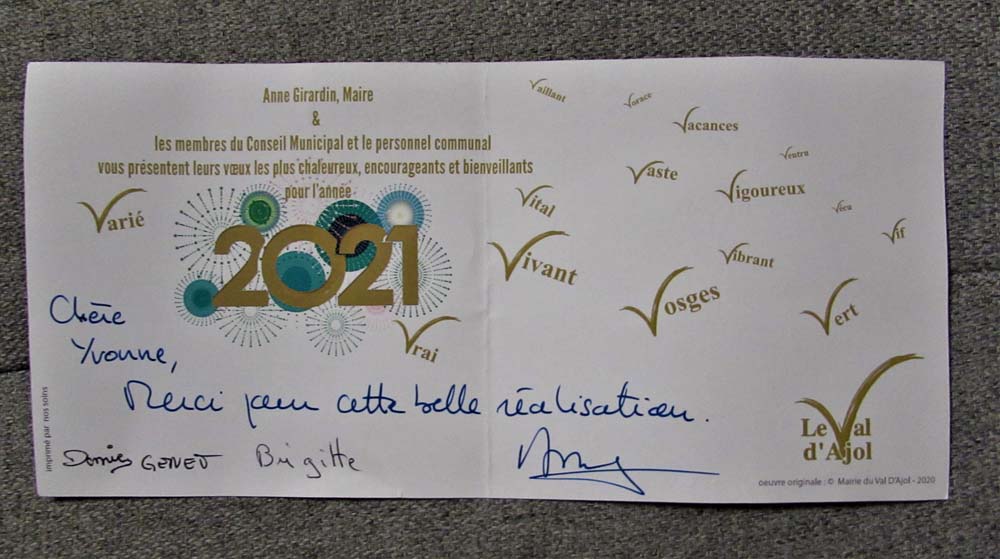 Anne Girardin, Maire
&
les membres du Conseil Municipal et le personnel communal
vous présentent leurs vœux les plus chaleureux, encourageants et bienveillants
pour l'année
2021
Varié
Vrai
Chère
Yvonne,
Merci pour cette belle réalisation.
GENET
Brigitte
imprimé par nos soins
Vaillant
Vorace
Vacances
Ventru
Vaste
Vigoureux
Vital
Vécu
Vif
Vivant
Vibrant
Vosges
Vert
Le Val
d'Ajol
oeuvre originale : © Mairie du Val D'Ajol - 2020